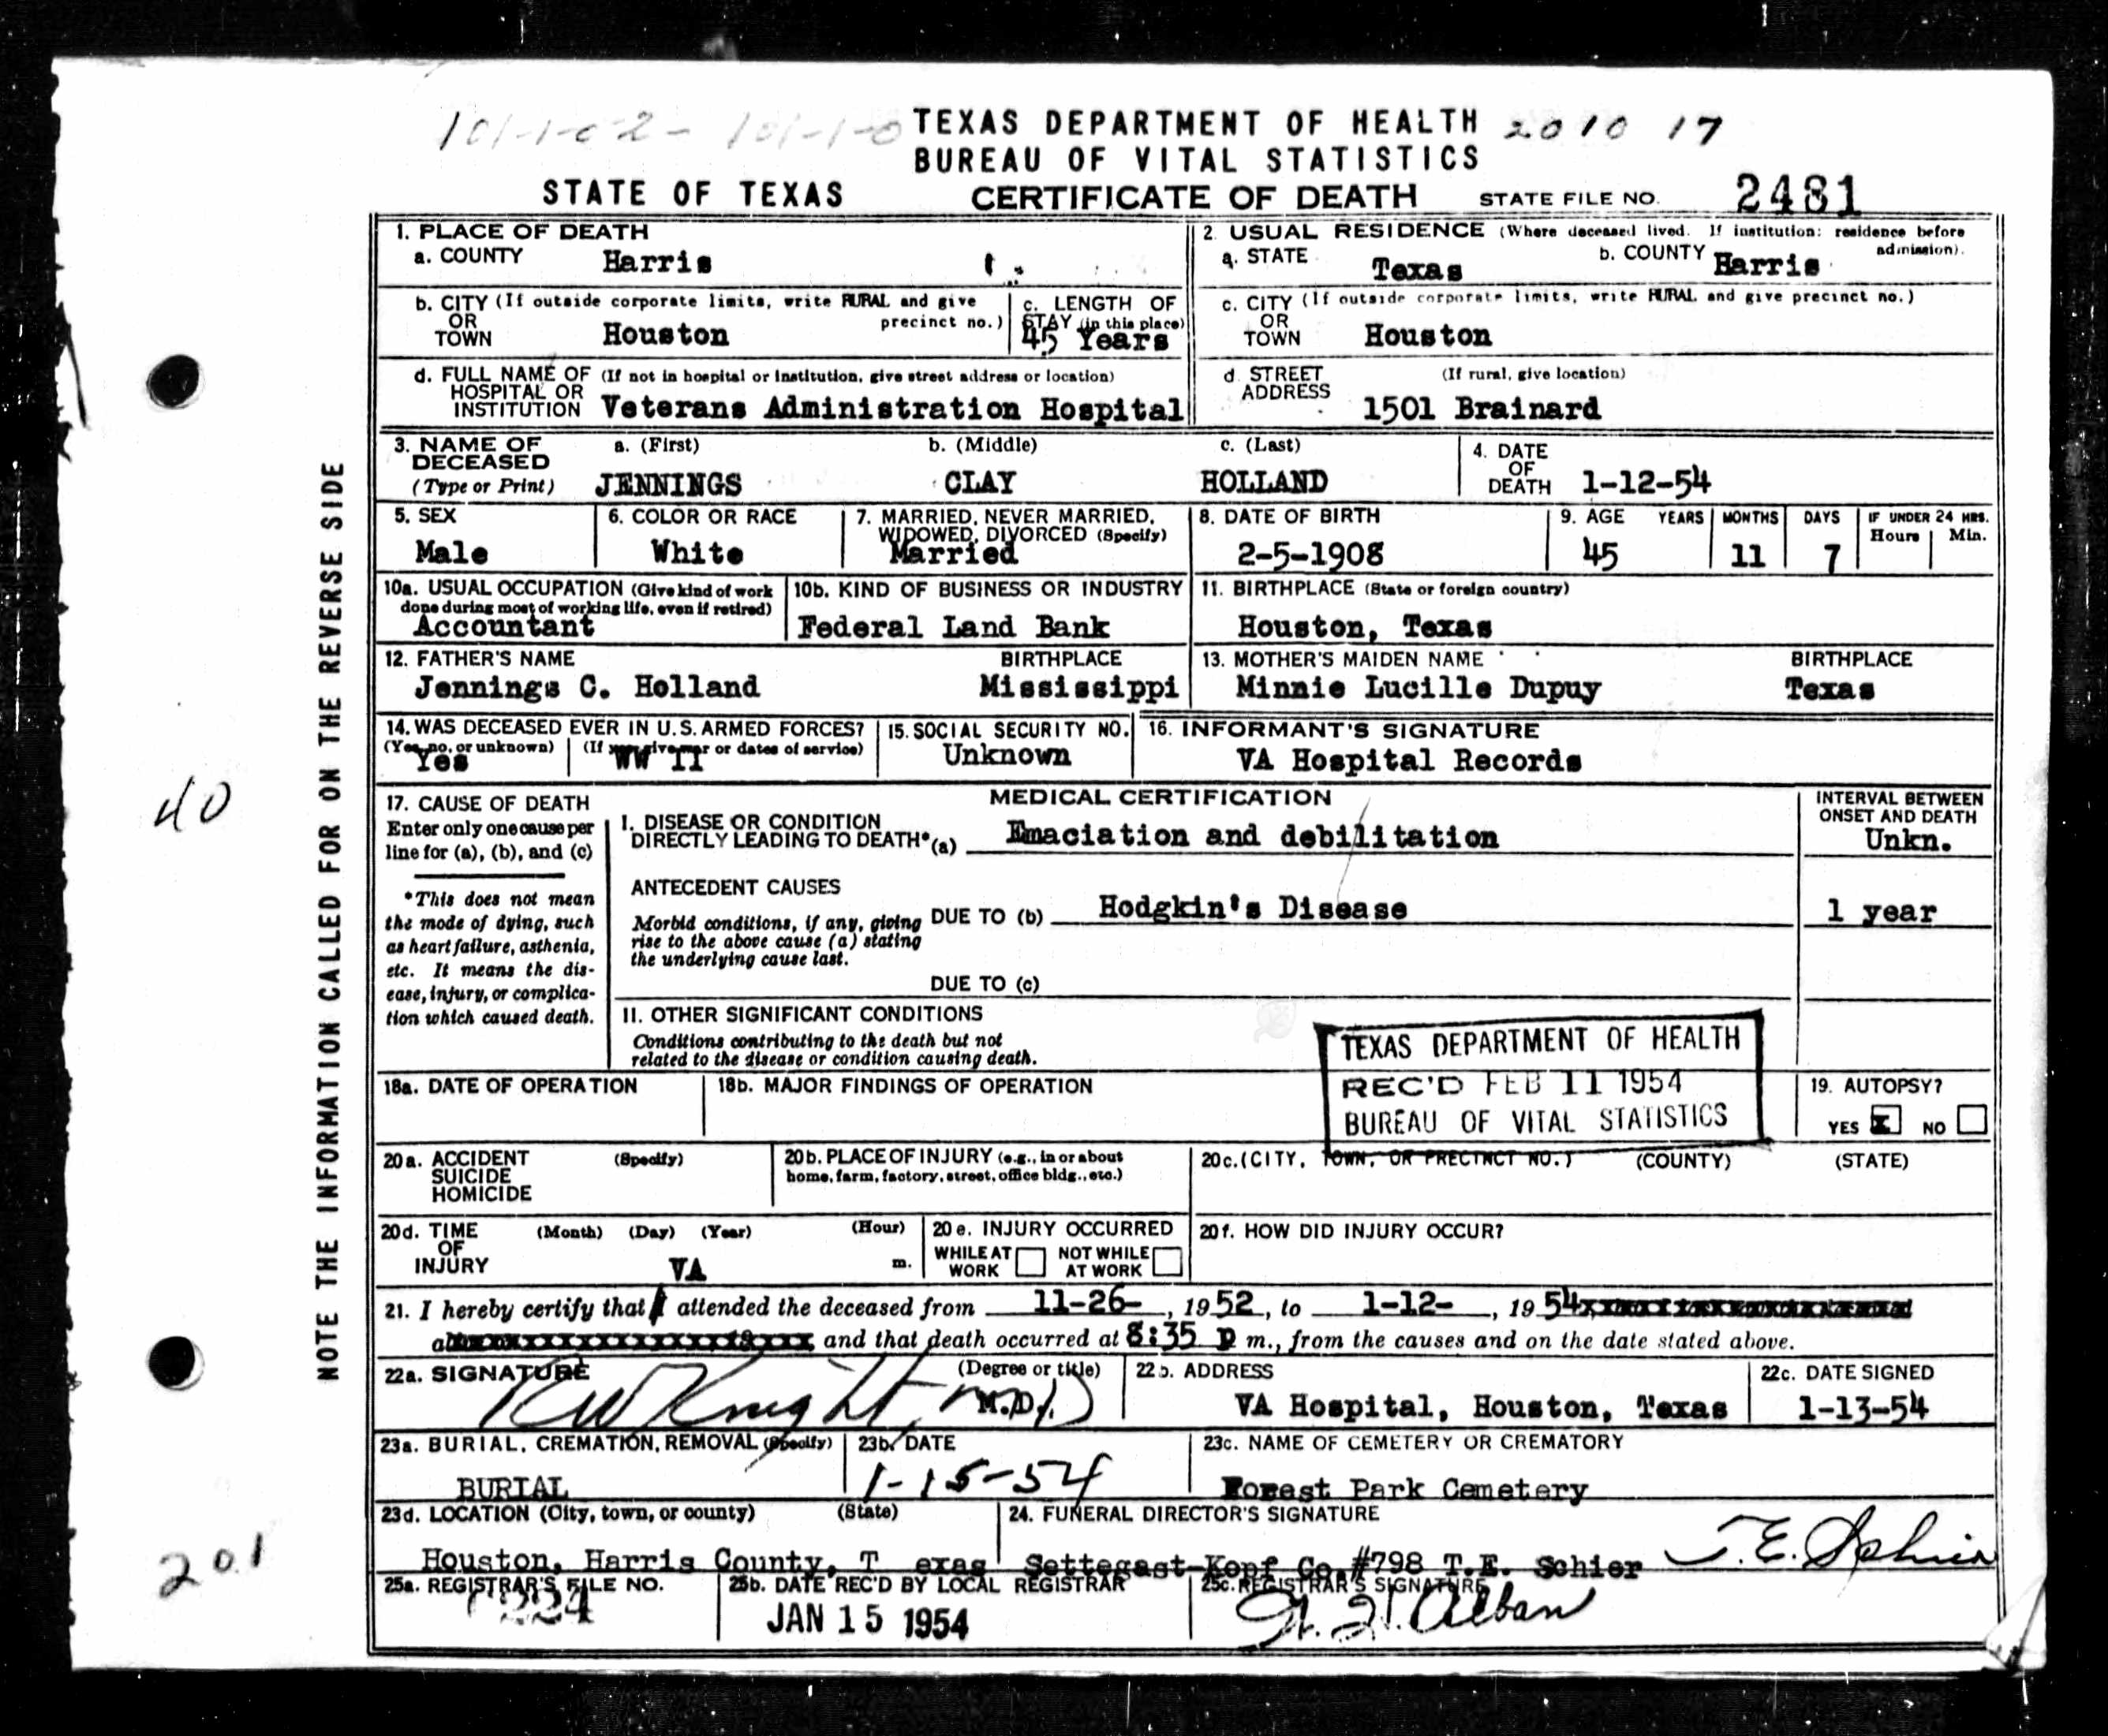 TEXAS DEPARTMENT OF HEALTH 2010 17
BUREAU OF VITAL STATISTICS
STATE OF TEXAS CERTIFICATE OF DEATH STATE FILE NO. 2481
NOTE THE INFORMATION CALLED FOR ON THE REVERSE SIDE
40
201
1. PLACE OF DEATH
a. COUNTY Harris
2. USUAL RESIDENCE (Where deceased lived. If institution: residence before admission).
a. STATE Texas b. COUNTY Harris
b. CITY (If outside corporate limits, write RURAL and give precinct no.)
OR
TOWN Houston
c. LENGTH OF
STAY (in this place)
45 Years
c. CITY (If outside corporate limits, write RURAL and give precinct no.)
OR
TOWN Houston
d. FULL NAME OF (If not in hospital or institution, give street address or location)
HOSPITAL OR
INSTITUTION Veterans Administration Hospital
d. STREET (If rural, give location)
ADDRESS 1501 Brainard
3. NAME OF DECEASED
(Type or Print)
a. (First) b. (Middle) c. (Last)
JENNINGS CLAY HOLLAND
4. DATE
OF
DEATH 1-12-54
5. SEX
Male
6. COLOR OR RACE
White
7. MARRIED, NEVER MARRIED,
WIDOWED, DIVORCED (Specify)
Married
8. DATE OF BIRTH
2-5-1908
9. AGE YEARS MONTHS DAYS IF UNDER 24 HRS.
Hours Min.
45 11 7
10a. USUAL OCCUPATION (Give kind of work
done during most of working life, even if retired)
Accountant
10b. KIND OF BUSINESS OR INDUSTRY
Federal Land Bank
11. BIRTHPLACE (State or foreign country)
Houston, Texas
12. FATHER'S NAME BIRTHPLACE
Jennings C. Holland Mississippi
13. MOTHER'S MAIDEN NAME BIRTHPLACE
Minnie Lucille Dupuy Texas
14. WAS DECEASED EVER IN U.S. ARMED FORCES?
(Yes, no, or unknown) (If yes, give war or dates of service)
Yes WW II
15. SOCIAL SECURITY NO.
Unknown
16. INFORMANT'S SIGNATURE
VA Hospital Records
17. CAUSE OF DEATH
Enter only one cause per
line for (a), (b), and (c)
*This does not mean
the mode of dying, such
as heart failure, asthenia,
etc. It means the dis-
ease, injury, or complica-
tion which caused death.
MEDICAL CERTIFICATION
INTERVAL BETWEEN
ONSET AND DEATH
I. DISEASE OR CONDITION
DIRECTLY LEADING TO DEATH* (a) Emaciation and debilitation Unkn.
ANTECEDENT CAUSES
Morbid conditions, if any, giving
rise to the above cause (a) stating
the underlying cause last.
DUE TO (b) Hodgkin's Disease 1 year
DUE TO (c)
II. OTHER SIGNIFICANT CONDITIONS
Conditions contributing to the death but not
related to the disease or condition causing death.
TEXAS DEPARTMENT OF HEALTH
REC'D FEB 11 1954
BUREAU OF VITAL STATISTICS
18a. DATE OF OPERATION
18b. MAJOR FINDINGS OF OPERATION
19. AUTOPSY?
YES X NO
20a. ACCIDENT (Specify)
SUICIDE
HOMICIDE
20b. PLACE OF INJURY (e.g., in or about
home, farm, factory, street, office bldg., etc.)
20c. (CITY, TOWN, OR PRECINCT NO.) (COUNTY) (STATE)
20d. TIME (Month) (Day) (Year) (Hour)
OF
INJURY m.
VA
20e. INJURY OCCURRED
WHILE AT WORK NOT WHILE AT WORK
20f. HOW DID INJURY OCCUR?
21. I hereby certify that attended the deceased from 11-26-, 1952, to 1-12-, 1954
and that death occurred at 8:35 p m., from the causes and on the date stated above.
22a. SIGNATURE (Degree or title)
R W Knight, M.D. M.D.
22b. ADDRESS
VA Hospital, Houston, Texas
22c. DATE SIGNED
1-13-54
23a. BURIAL, CREMATION, REMOVAL (Specify)
BURIAL
23b. DATE
1-15-54
23c. NAME OF CEMETERY OR CREMATORY
Forest Park Cemetery
23d. LOCATION (City, town, or county) (State)
Houston, Harris County, T exas
24. FUNERAL DIRECTOR'S SIGNATURE
Settegast-Kopf Co. #798 T.E. Schier T.E. Schier
25a. REGISTRAR'S FILE NO.
224
25b. DATE REC'D BY LOCAL REGISTRAR
JAN 15 1954
25c. REGISTRAR'S SIGNATURE
Alban